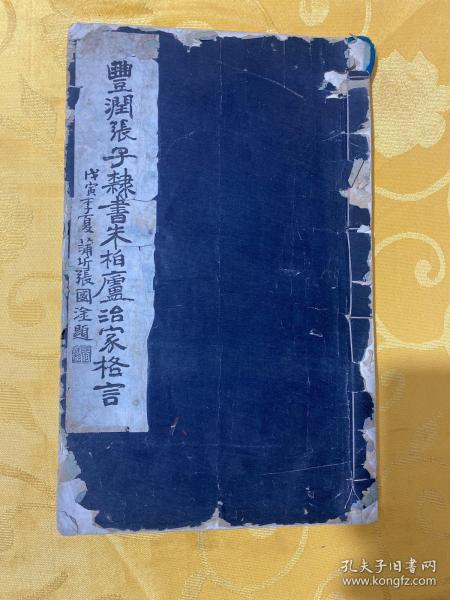 豐潤張子隸書朱柏廬治家格言
戊寅季夏蒲圻張國淦題
孔夫子旧书网
www.kongfz.com